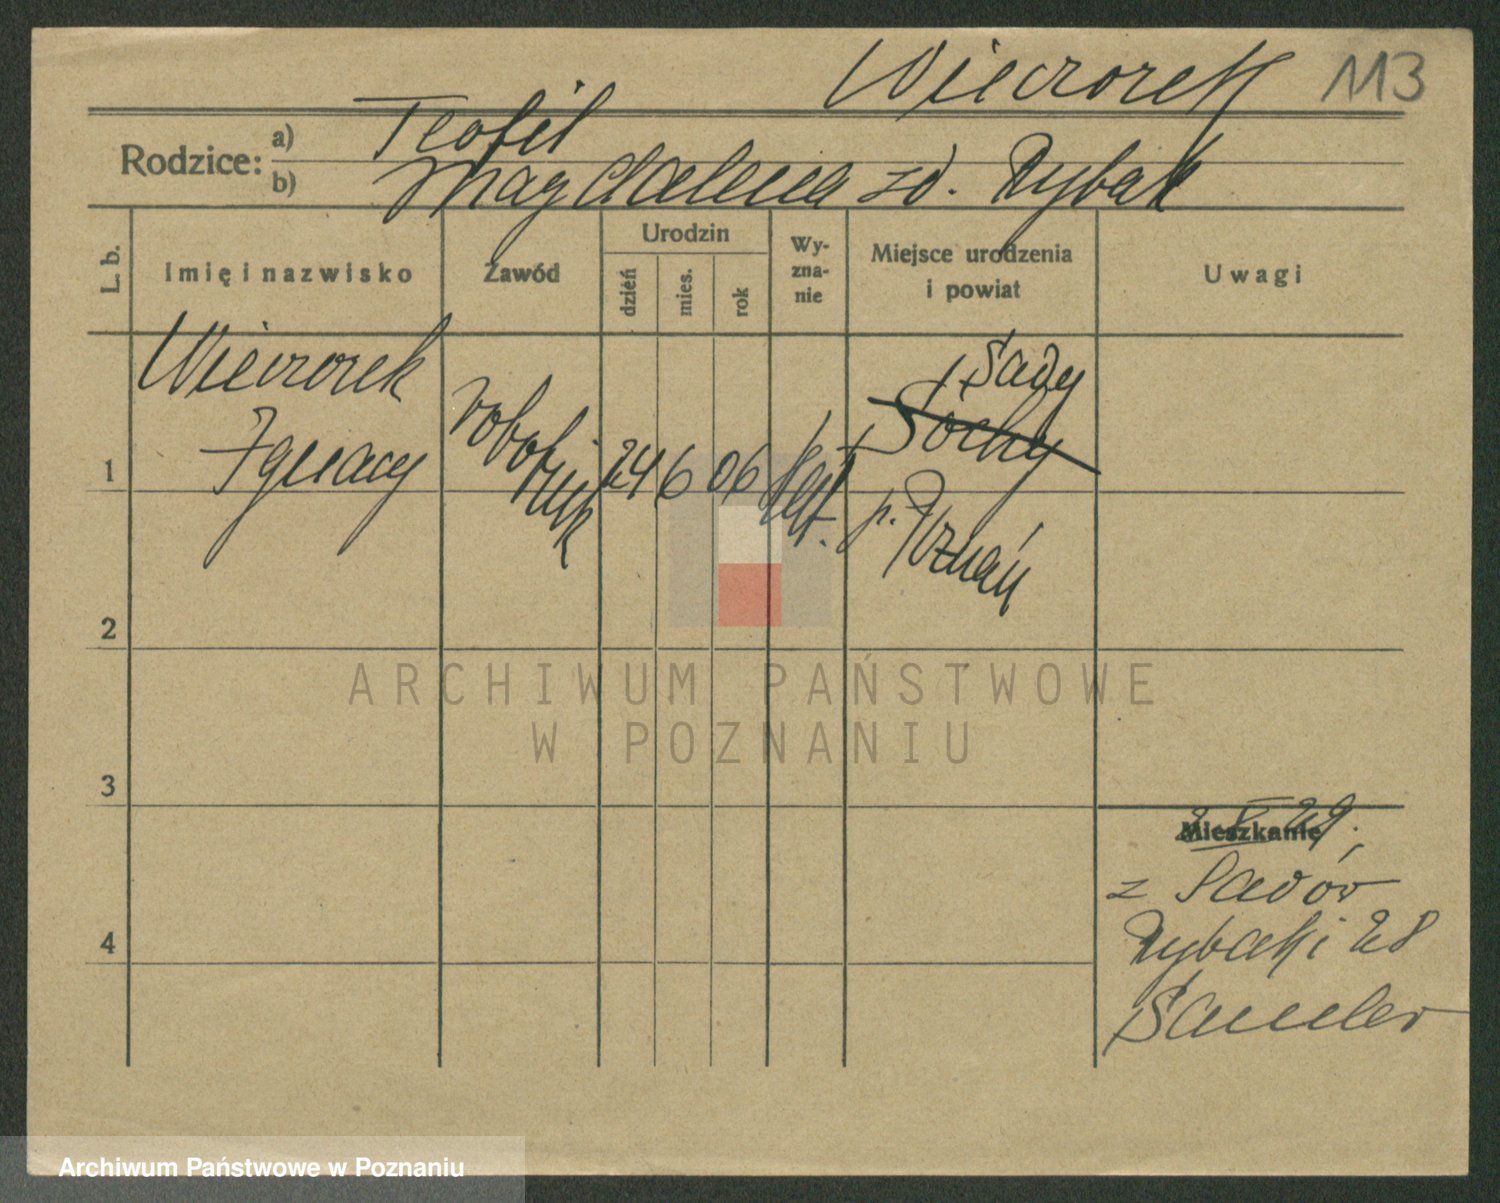 Wieczorek 113
Rodzice: a) Teofil
b) Magdalena zd. Rybak
L. b.
Imię i nazwisko
Zawód
Urodzin
dzień
mies.
rok
Wy-
zna-
nie
Miejsce urodzenia
i powiat
Uwagi
1
Wieczorek
Ignacy
robotnik
24 6 06
kat.
Sady
Sochy
p. Poznań
2
3
4
Mieszkanie
29.
z Sadów
Rybaki 28
ARCHIWUM PAŃSTWOWE
W POZNANIU
Archiwum Państwowe w Poznaniu